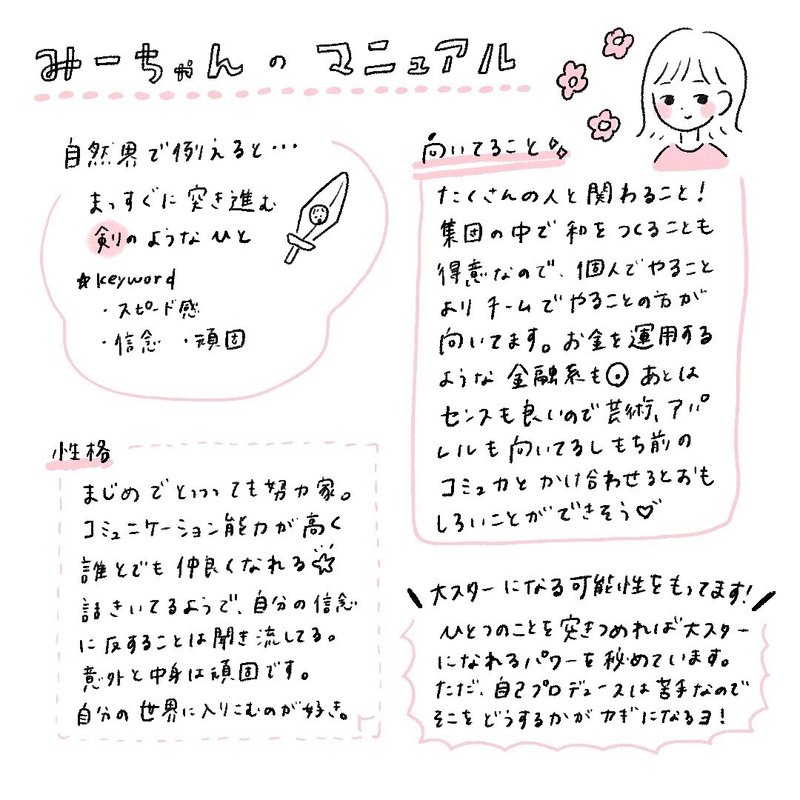 みーちゃんの マニュアル
自然界で例えると…
まっすぐに 突き進む
剣のようなひと
☆keyword
・スピード感
・信念 ・頑固
性格
まじめでとっっっても努力家。
コミュニケーション能力が高く
誰とでも仲良くなれる☆
話きいてるようで、自分の信念
に反することは聞き流してる。
意外と中身は頑固です。
自分の世界に入りこむのが好き。
向いてること
たくさんの人と関わること!
集団の中で和をつくることも
得意なので、個人でやること
より チームでやることの方が
向いてます。お金を運用する
ような 金融系も⊙ あとは
センスも良いので芸術、アパ
レルも向いてるし もち前の
コミュ力と かけ合わせるとおも
しろいことができそう♡
大スターになる可能性をもってます!
ひとつのことを突きつめれば大スター
になれるパワーを秘めています。
ただ、自己プロデュースは苦手なので
そこをどうするかが カギになるヨ!